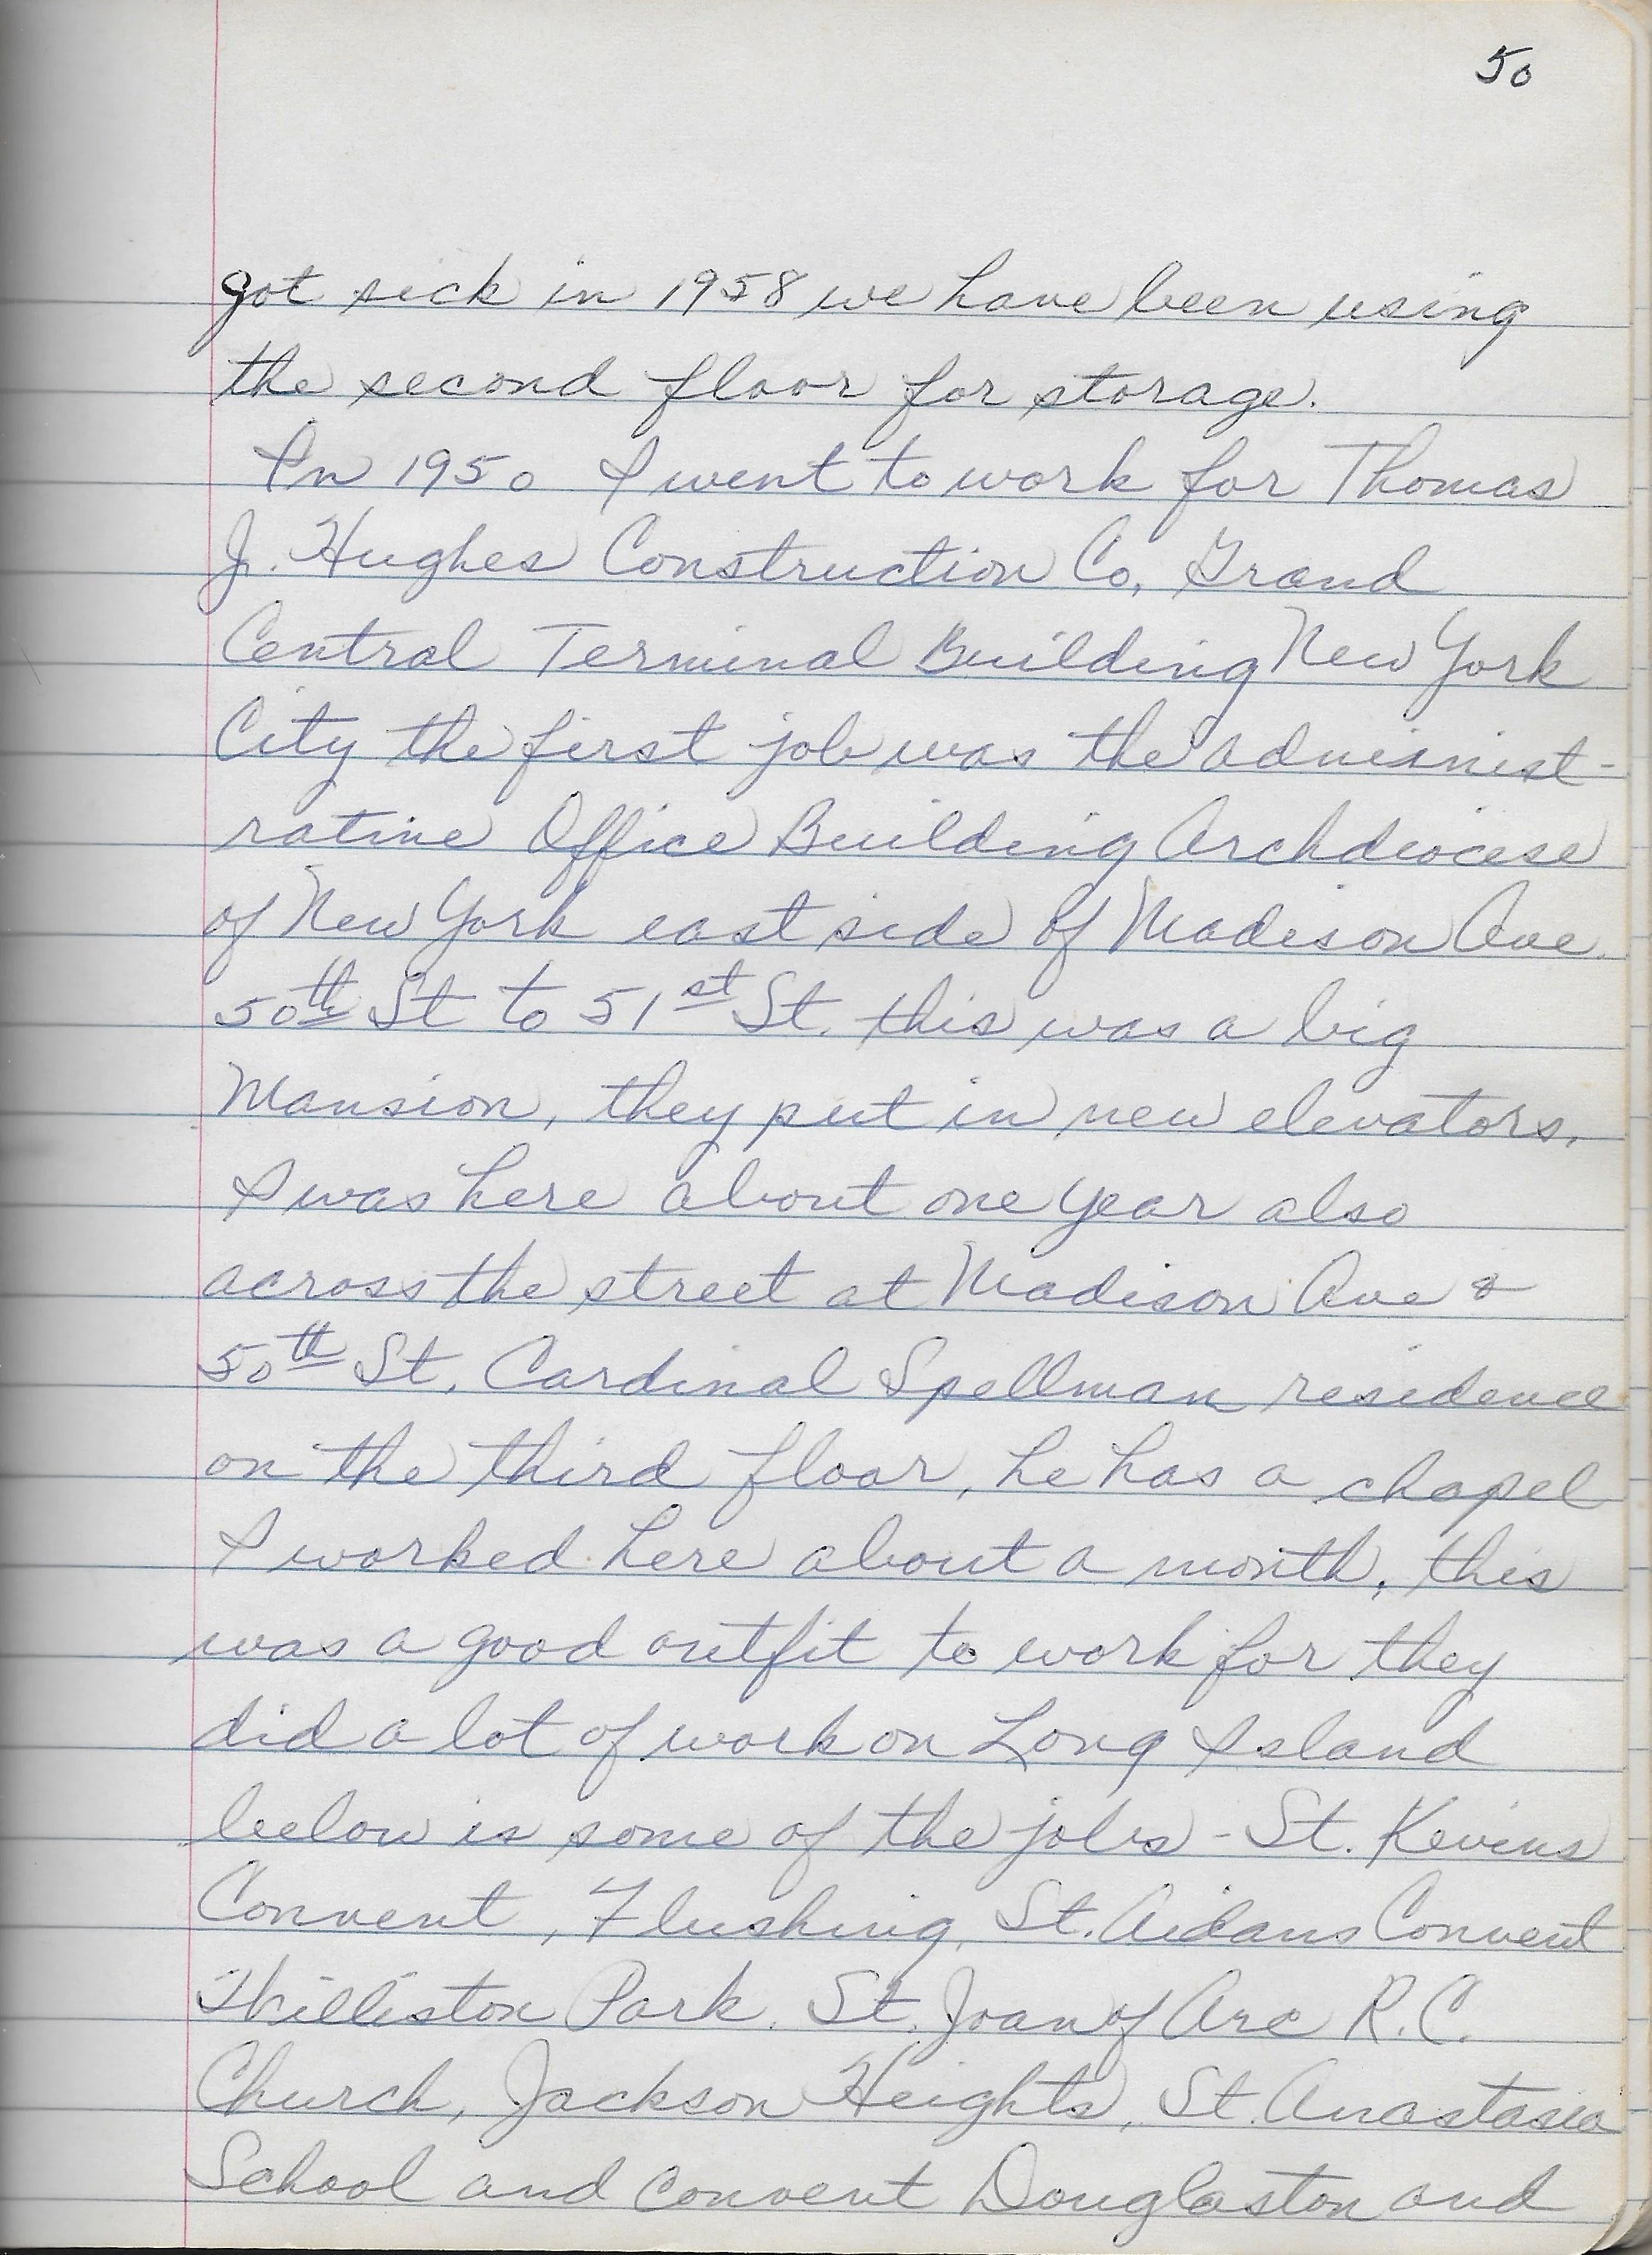 50
got sick in 1958 we have been using
the second floor for storage.
In 1950 I went to work for Thomas
J. Hughes Construction Co, Grand
Central Terminal Building New York
City the first job was the administ-
rative Office Building Archdiocese
of New York east side of Madison Ave.
50th St to 51st St. this was a big
Mansion, they put in new elevators.
I was here about one year also
across the street at Madison Ave &
50th St. Cardinal Spellman residence
on the third floor, he has a chapel
I worked here about a month, this
was a good outfit to work for they
did a lot of work on Long Island
below is some of the jobs - St. Kevins
Convent, Flushing, St. Aidans Convent
Williston Park. St. Joan of Arc R.C.
Church, Jackson Heights, St. Anastasia
School and convent Douglaston and